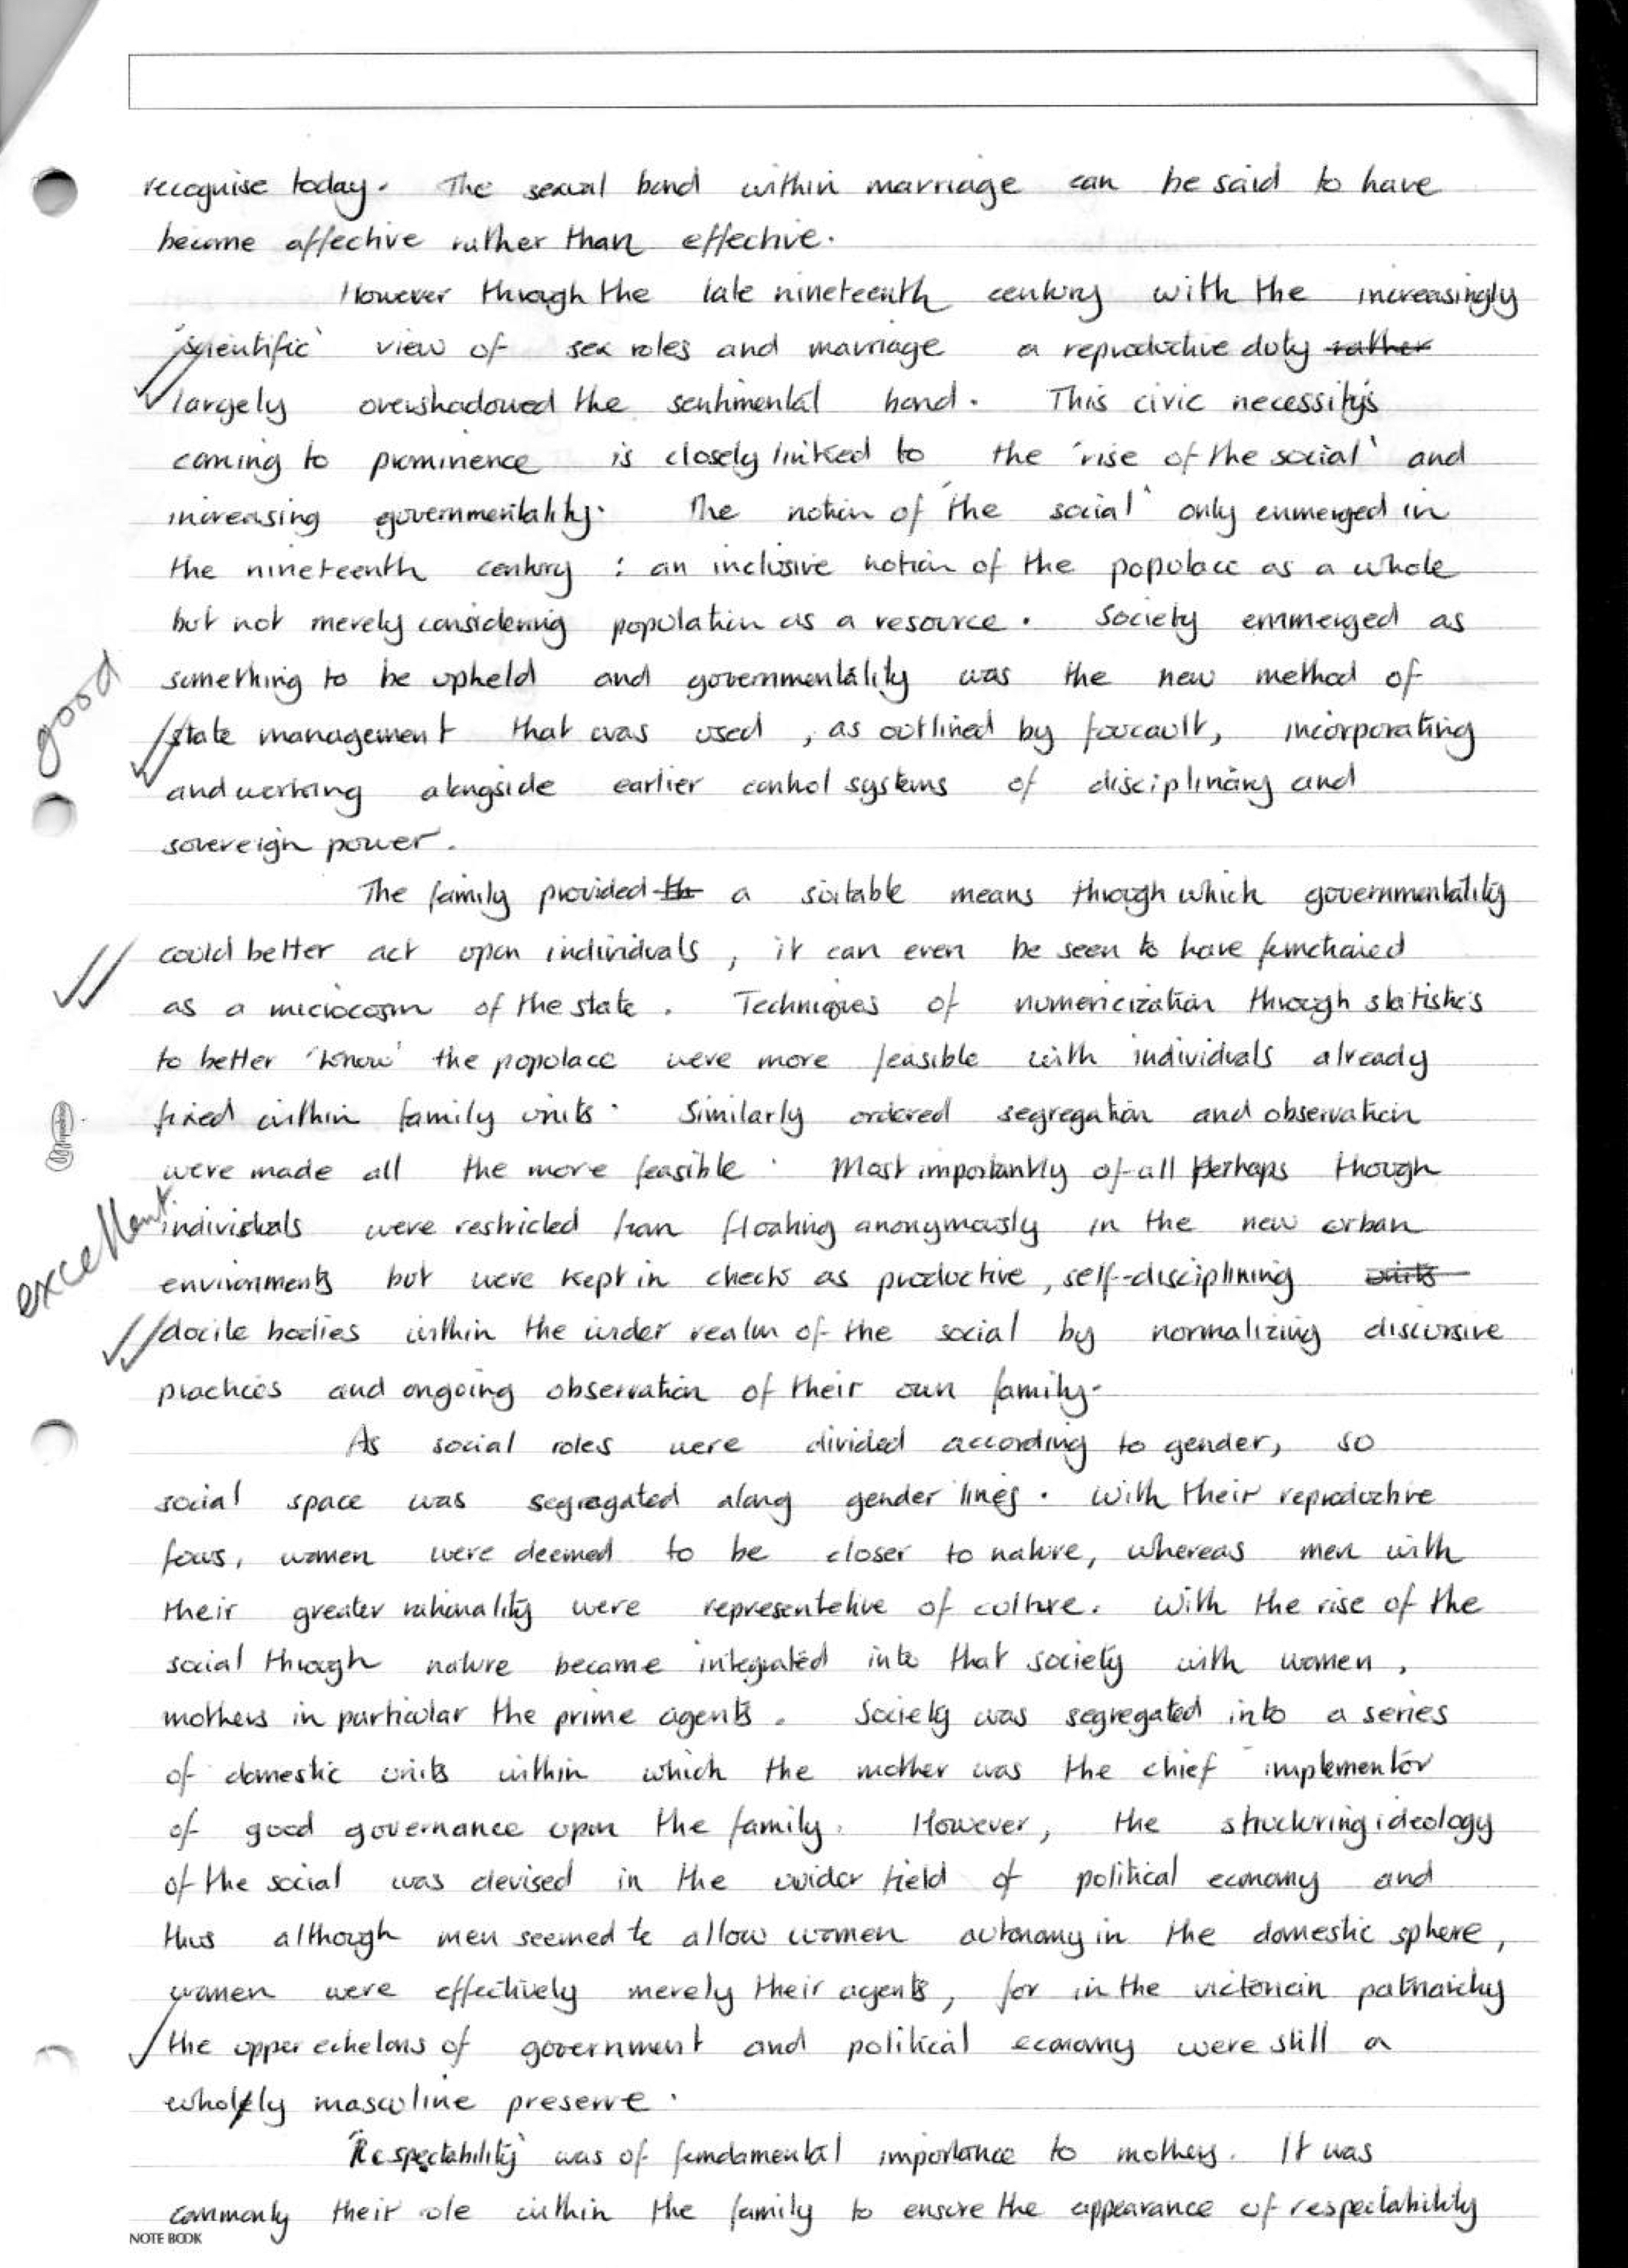 recognise today. The sexual bond within marriage can be said to have
become affective rather than effective.
However through the late nineteenth century with the increasingly
'scientific' view of sex roles and marriage a reproductive duty rather
largely overshadowed the sentimental bond. This civic necessity's
coming to prominence is closely linked to the 'rise of the social' and
increasing governmentality. The notion of 'the social' only enmerged in
the nineteenth century : an inclusive notion of the populace as a whole
but not merely considering population as a resource. Society emmerged as
good
something to be upheld and governmentality was the new method of
state management that was used, as outlined by foucault, incorporating
and working alongside earlier control systems of disciplinary and
sovereign power.
The family provided th a suitable means through which governmentality
could better act upon individuals, it can even be seen to have functioned
as a microcosm of the state. Techniques of numericization through statistics
to better 'know' the populace were more feasible with individuals already
fixed within family units. Similarly ordered segregation and observation
were made all the more feasible. Most importantly of all perhaps though
excellent.
individuals were restricted from floating anonymously in the new urban
environments but were kept in check as productive, self-disciplining units
docile bodies within the wider realm of the social by normalizing discursive
practices and ongoing observation of their own family.
As social roles were divided according to gender, so
social space was segregated along gender lines. With their reproductive
focus, women were deemed to be closer to nature, whereas men with
their greater rationality were representative of culture. With the rise of the
social through nature became integrated into that society with women,
mothers in particular the prime agents. Society was segregated into a series
of domestic units within which the mother was the chief implementor
of good governance upon the family. However, the structuring ideology
of the social was devised in the wider field of political economy and
thus although men seemed to allow women autonomy in the domestic sphere,
women were effectively merely their agents, for in the victorian patriarchy
the upper echelons of government and political economy were still a
wholly masculine preserve.
'Respectability' was of fundamental importance to mothers. It was
commonly their role within the family to ensure the appearance of respectability
NOTE BOOK